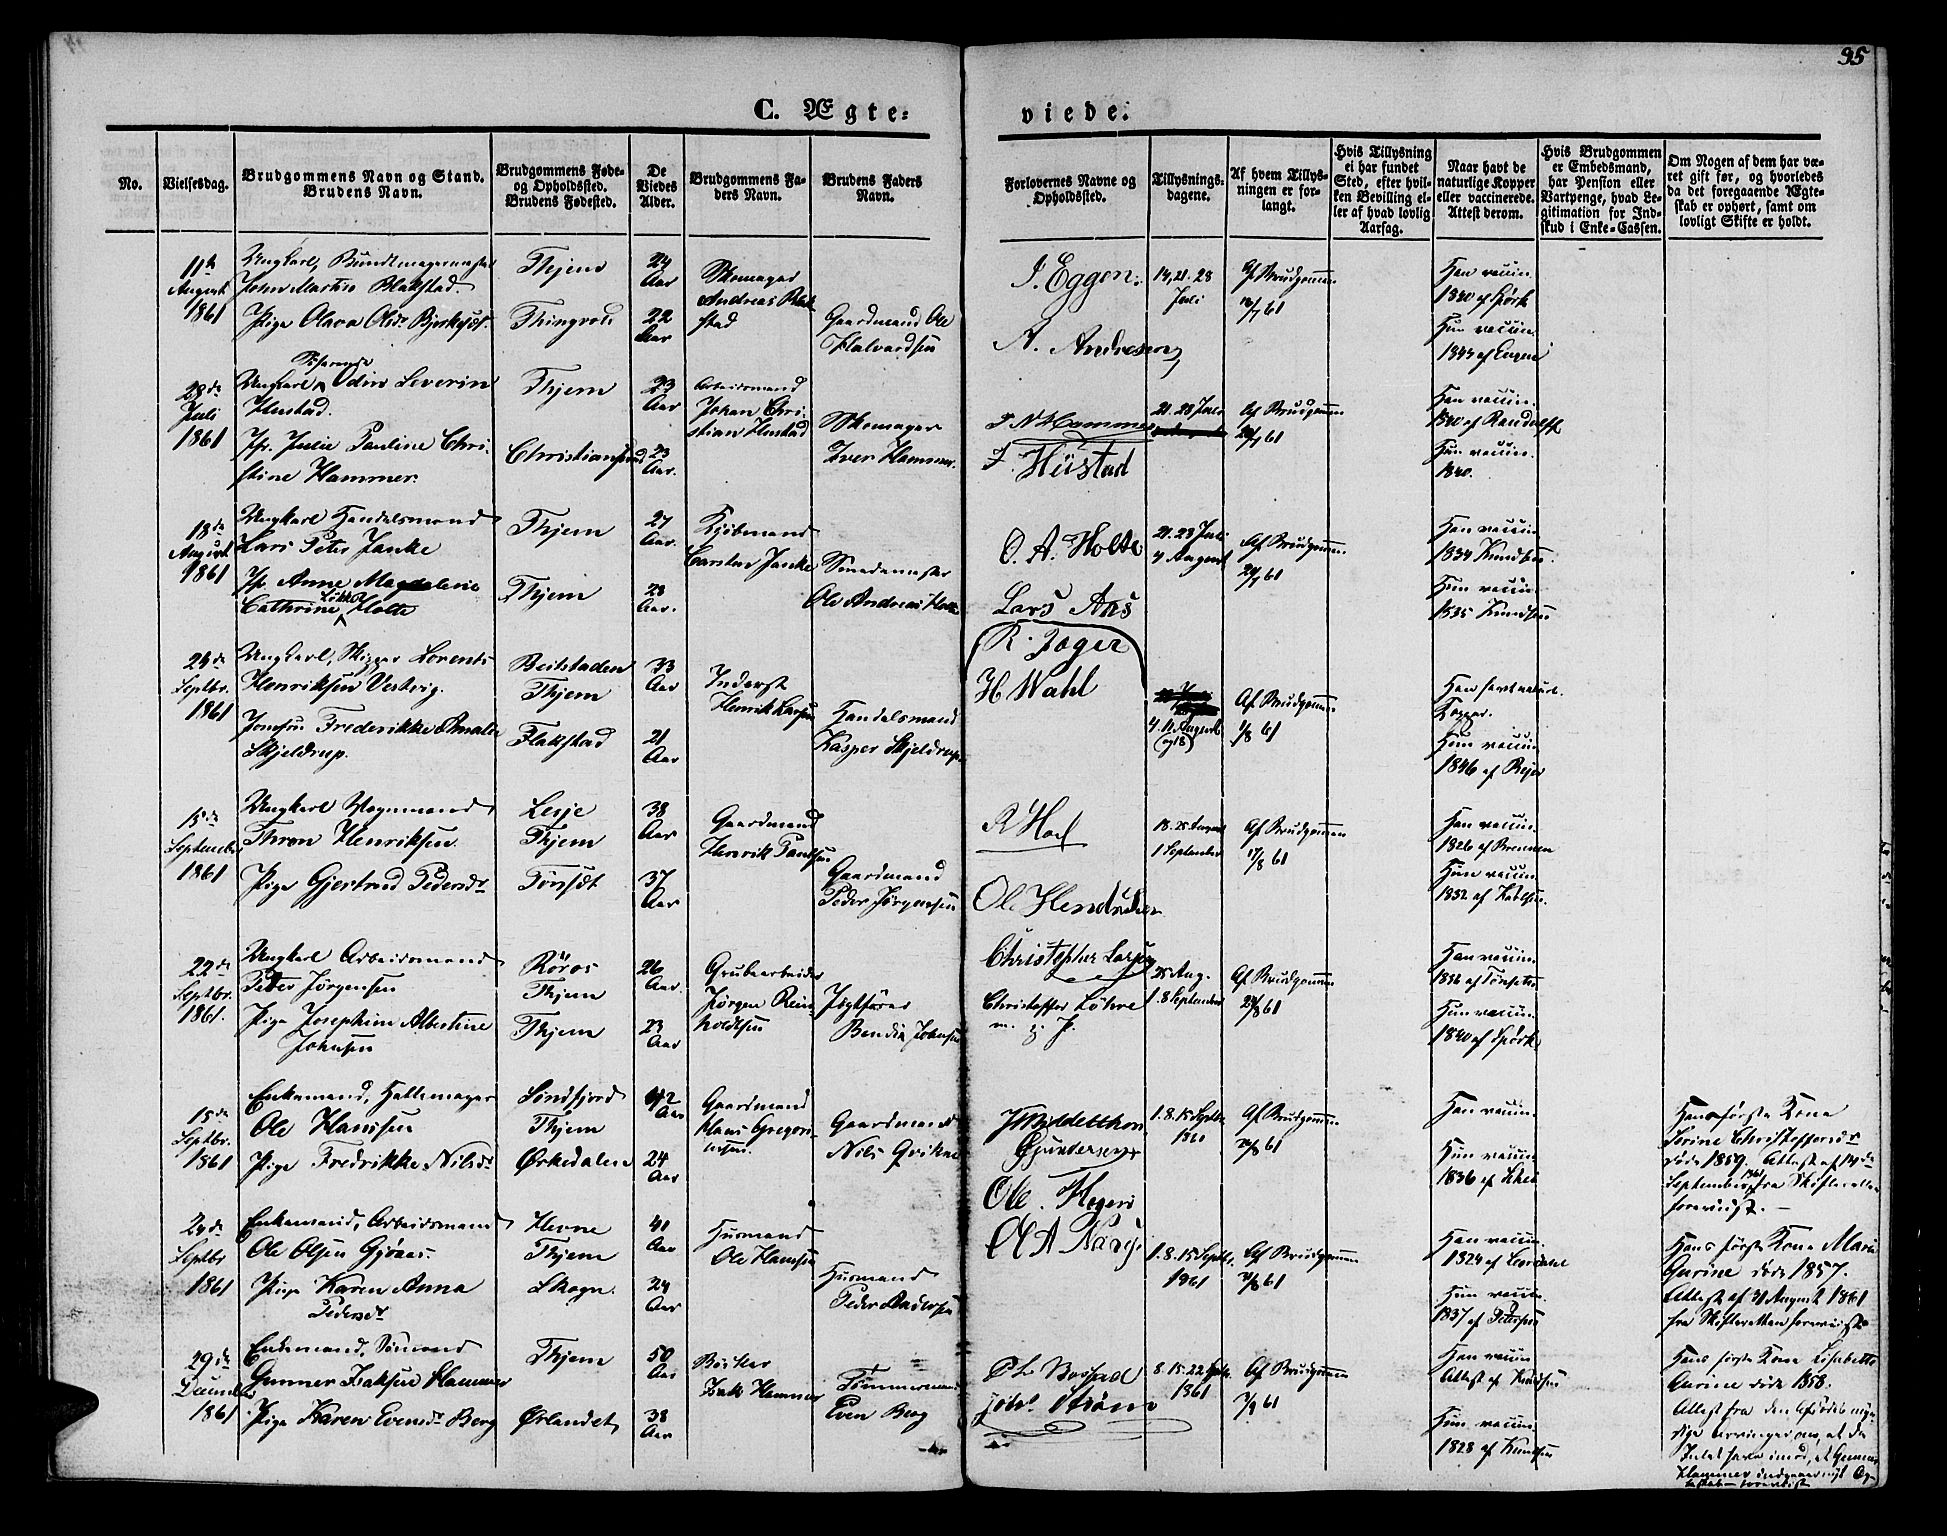 95
C. Ægte-
viede.
No.
Vielsesdag.
Brudgommens Navn og Stand.
Brudens Navn.
Brudgommens Føde-
og Opholdssted.
Brudens Fødested.
De
Viedes
Alder.
Brudgommens Fa-
ders Navn.
Brudens Faders
Navn.
Forlovernes Navne og
Opholdssted.
Tillysnings-
dagene.
Af hvem Tillys-
ningen er for-
langt.
Hvis Tillysning
ei har fundet
Sted, efter hvil-
ken Bevilling el-
ler af hvad lovlig
Aarsag.
Naar havt de
naturlige Kopper
eller vaccinerede.
Attest derom.
Hvis Brudgommen
er Embedsmand,
har Pension eller
Vartpenge, hvad Le-
gitimation for Ind-
skud i Enke-Cassen.
Om Nogen af dem har væ-
ret gift før, og hvorledes
da det foregaaende Ægte-
skab er ophørt, samt om
lovligt Skifte er holdt.
11te
August
1861
Ungkarl, Bundtmagermester
John Martin Blakstad.
Pige Olava Olsdr
Thjem
Thingvold
24
Aar
22
Aar
Skomager
Andreas Blak-
stad
Gaardmand Ole
Halvardsen
I. Eggen.
A. Andresen
14, 21. 28
Juli
Af Brudgommen
/7 61
Han vaccin.
1840 af Spørk
Hun vaccin.
28de
Juli
1861
Ungkarl Odin Severin
Hustad.
Jfr. Julie Pauline Chri-
stine Hammer.
Thjem
Christiansund
23
Aar
23
Aar.
Arbeidsmand
Johan Chri-
stian Hustad
Skomager
Iver Hammer.
I N Hammer
J. Hustad
21. 28 Juli
Af Brudgommen
61
Han vaccin.
1840 af
Hun vaccin.
1840.
18de
August
1861
Ungkarl Handelsmand
Lars Peter Janke
Jfr Anne Magdalene
Løkke
Cathrine Holte
Thjem
Thjem
27
Aar.
28
Aar.
Kjøbmand
Carsten Janke
Smedemester
Ole Andreas Holte
O. A. Holte
Lars Aas
21. 28 Juli
4 August
Af Brudgommen
61
Han vaccin
1834 Knudsen
Hun vaccin.
1835 Knudsen
24de
Septbr.
1861
Ungkarl, Skipper Lorents
Henriksen Vestvig.
Jomfru Frederikke Amalie
Skjeldrup.
Beitstaden
Thjem
Flakstad
33
Aar
21
Aar
Inderst
Henrik Larsen
Handelsmand
Kasper Skjeldrup.
R. Jager
H Wahl
4. 11. August
(og 18)
Af Brudgommen
1/8 61
Han havt naturl.
Kopper.
Hun vaccin
1846 af
15de
September
1861
Ungkarl Vognmand
Thron Henriksen
Pige Gjertrud Pedersdt
Lesje
Thjem
Tønset
38
Aar
37
Aar
Gaardmand
Henrik Paulsen
Gaardmand
Peder Jørgensen
R Hoel
Ole Hendriksen
18. 25 August
1 September
Af Brudgommen
17/8 61
Han vaccin.
1826 af
Hun vaccin.
1832 af
22de
Septbr.
1861.
Ungkarl Arbeidsmand
Peder Jørgensen
Pige Josephine Albertine
Johnsen
Røros
Thjem
Thjem
26
Aar.
23
Aar
Grubearbeider
Jørgen Rein-
holdtsen
Bendix Johnsen
Christopher Larsen
Christoffer Löhre
m. p. P.
25 Aug.
1. 8 September
Af Brudgommen
61
Han vaccin.
Hun vaccin.
1840 af Spørk.
15de
Septbr.
1861
Enkemand,
Ole Hansen
Pige Fredrikke Nilsdt
Søndfjord
Thjem
Ørkedalen
42
Aar
24
Aar
Gaardmand
Hans Gregori-
ussen.
Gaardmand
Nils
J Middelthon
Gjundersen
1. 8. 15 Septbr
1861
Af Brudgommen
61
Han vaccin
Hun vaccin
1836 af
Hans første Kone
Serine Christoffersdr
døde 1859. Attest af 14de
September 1861 fra Skifteretten
foreviist. —
24de
Septbr
1861
Enkemand, Arbeidsmand
Ole Olsen Gjøaas
Pige Karen Anna
Pedersdt
Hevne
Thjem
Skogn.
41
Aar
24
Aar
Husmand
Ole Hansen
Husmand
Peder Andersen
Ole
1. 8. 15 Septbr.
1861
Af Brudgommen
/8 61
Han vaccin.
1824 af
Hun vaccin.
1837 af
Hans første Kone Maria
Gurine døde 1857.
Attest af 31 August 1861
fra Skifteretten foreviist.
29de
Decembr
1861
Enkemand, Sømand
Gunner Isaksen Hammer
Pige Karen Evensdr Berg
Thjem
Ørlandet
50
Aar
38
Aar
Bødker
Isak Hammer
Tømmermand
Even Berg
Strøm
8. 15. 22 Septbr.
1861
Af Brudgommen
7/9 61
Han vaccin
Attest af Knudsen
Hun vaccin.
1828 af Knudsen
Hans første Kone Lisabeth
døde 1858.
Attest fra den Afdødes myn-
dige Arvinger om, at de
Intet have imod, at Gunner
Hammer indgaaer nyt Æg-
teskab foreviist